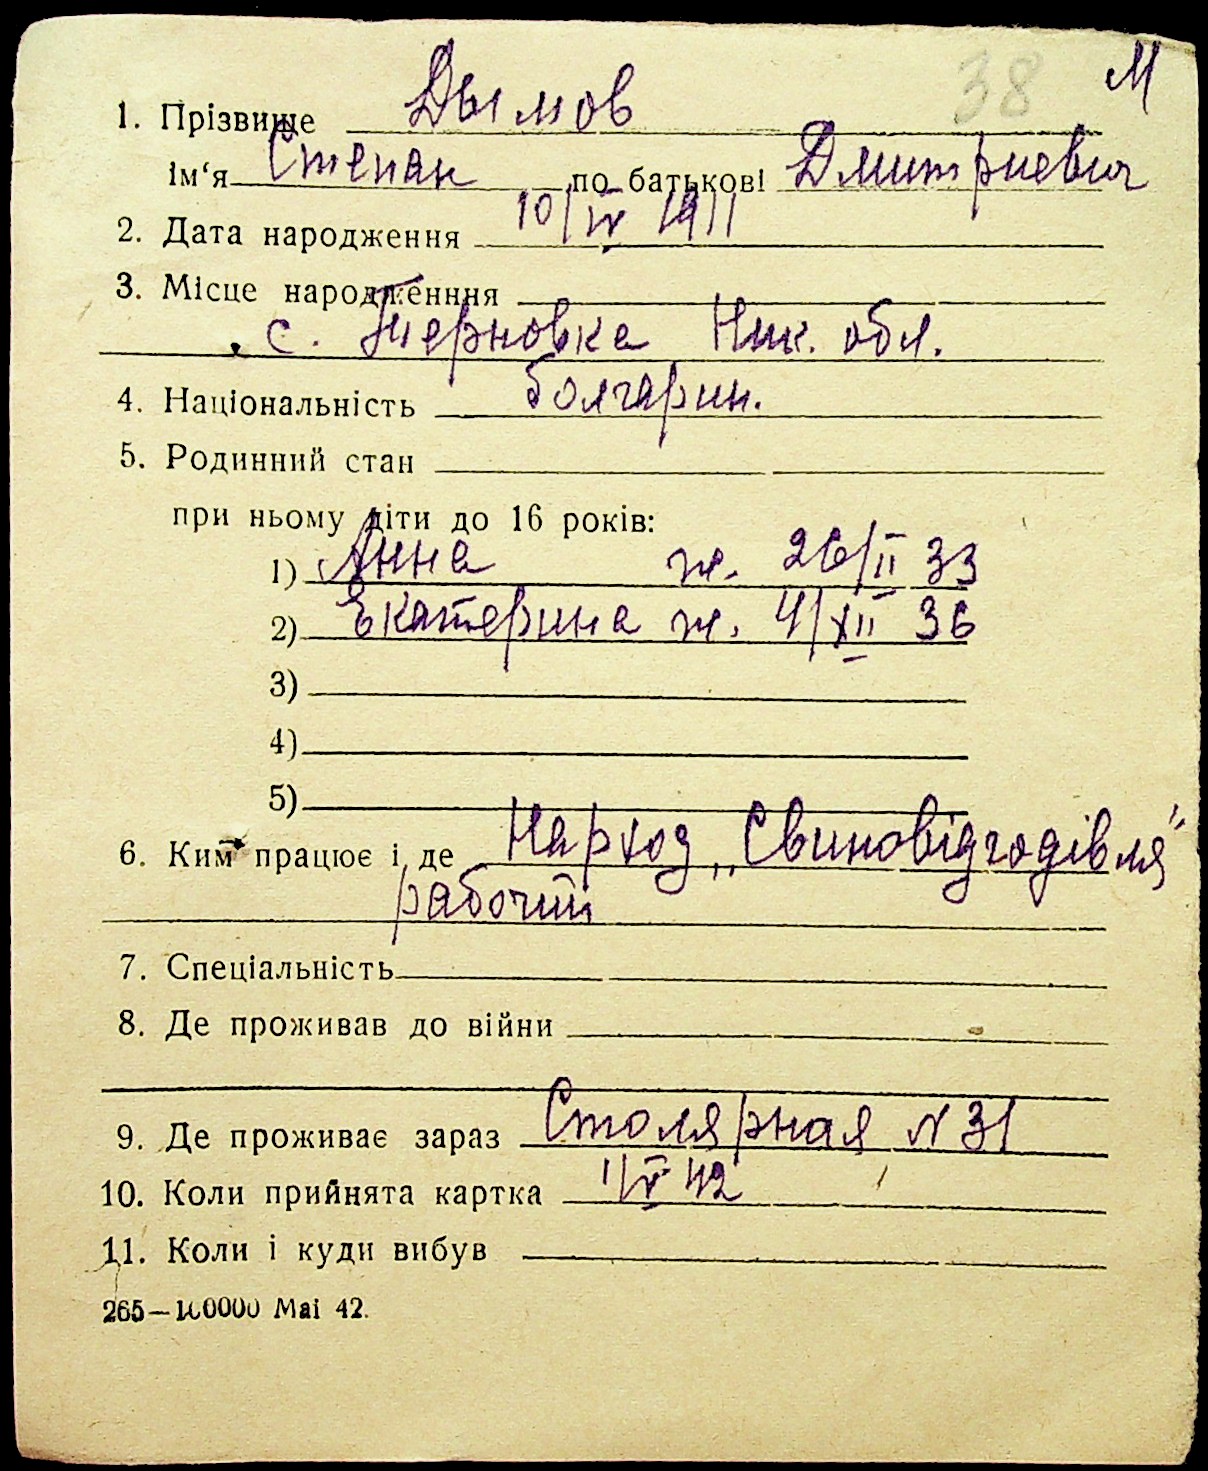 38 М
1. Прізвище Дымов
Ім‘я Степан по батькові Дмитриевич
2. Дата народження 10/IV 1911
3. Місце народженння
с. Терновка Ник. обл.
4. Національність болгарин.
5. Родинний стан
при ньому діти до 16 років:
1) Анна ж. 26/II 33
2) Екатерина ж. 4/XII 36
3)
4)
5)
6. Ким працює і де Нархоз „Свиновідгодівля"
рабочий
7. Спеціальність
8. Де проживав до війни
9. Де проживає зараз Столярная N 31
10. Коли прийнята картка 1/V 42
11. Коли і куди вибув
265—100000 Mai 42.